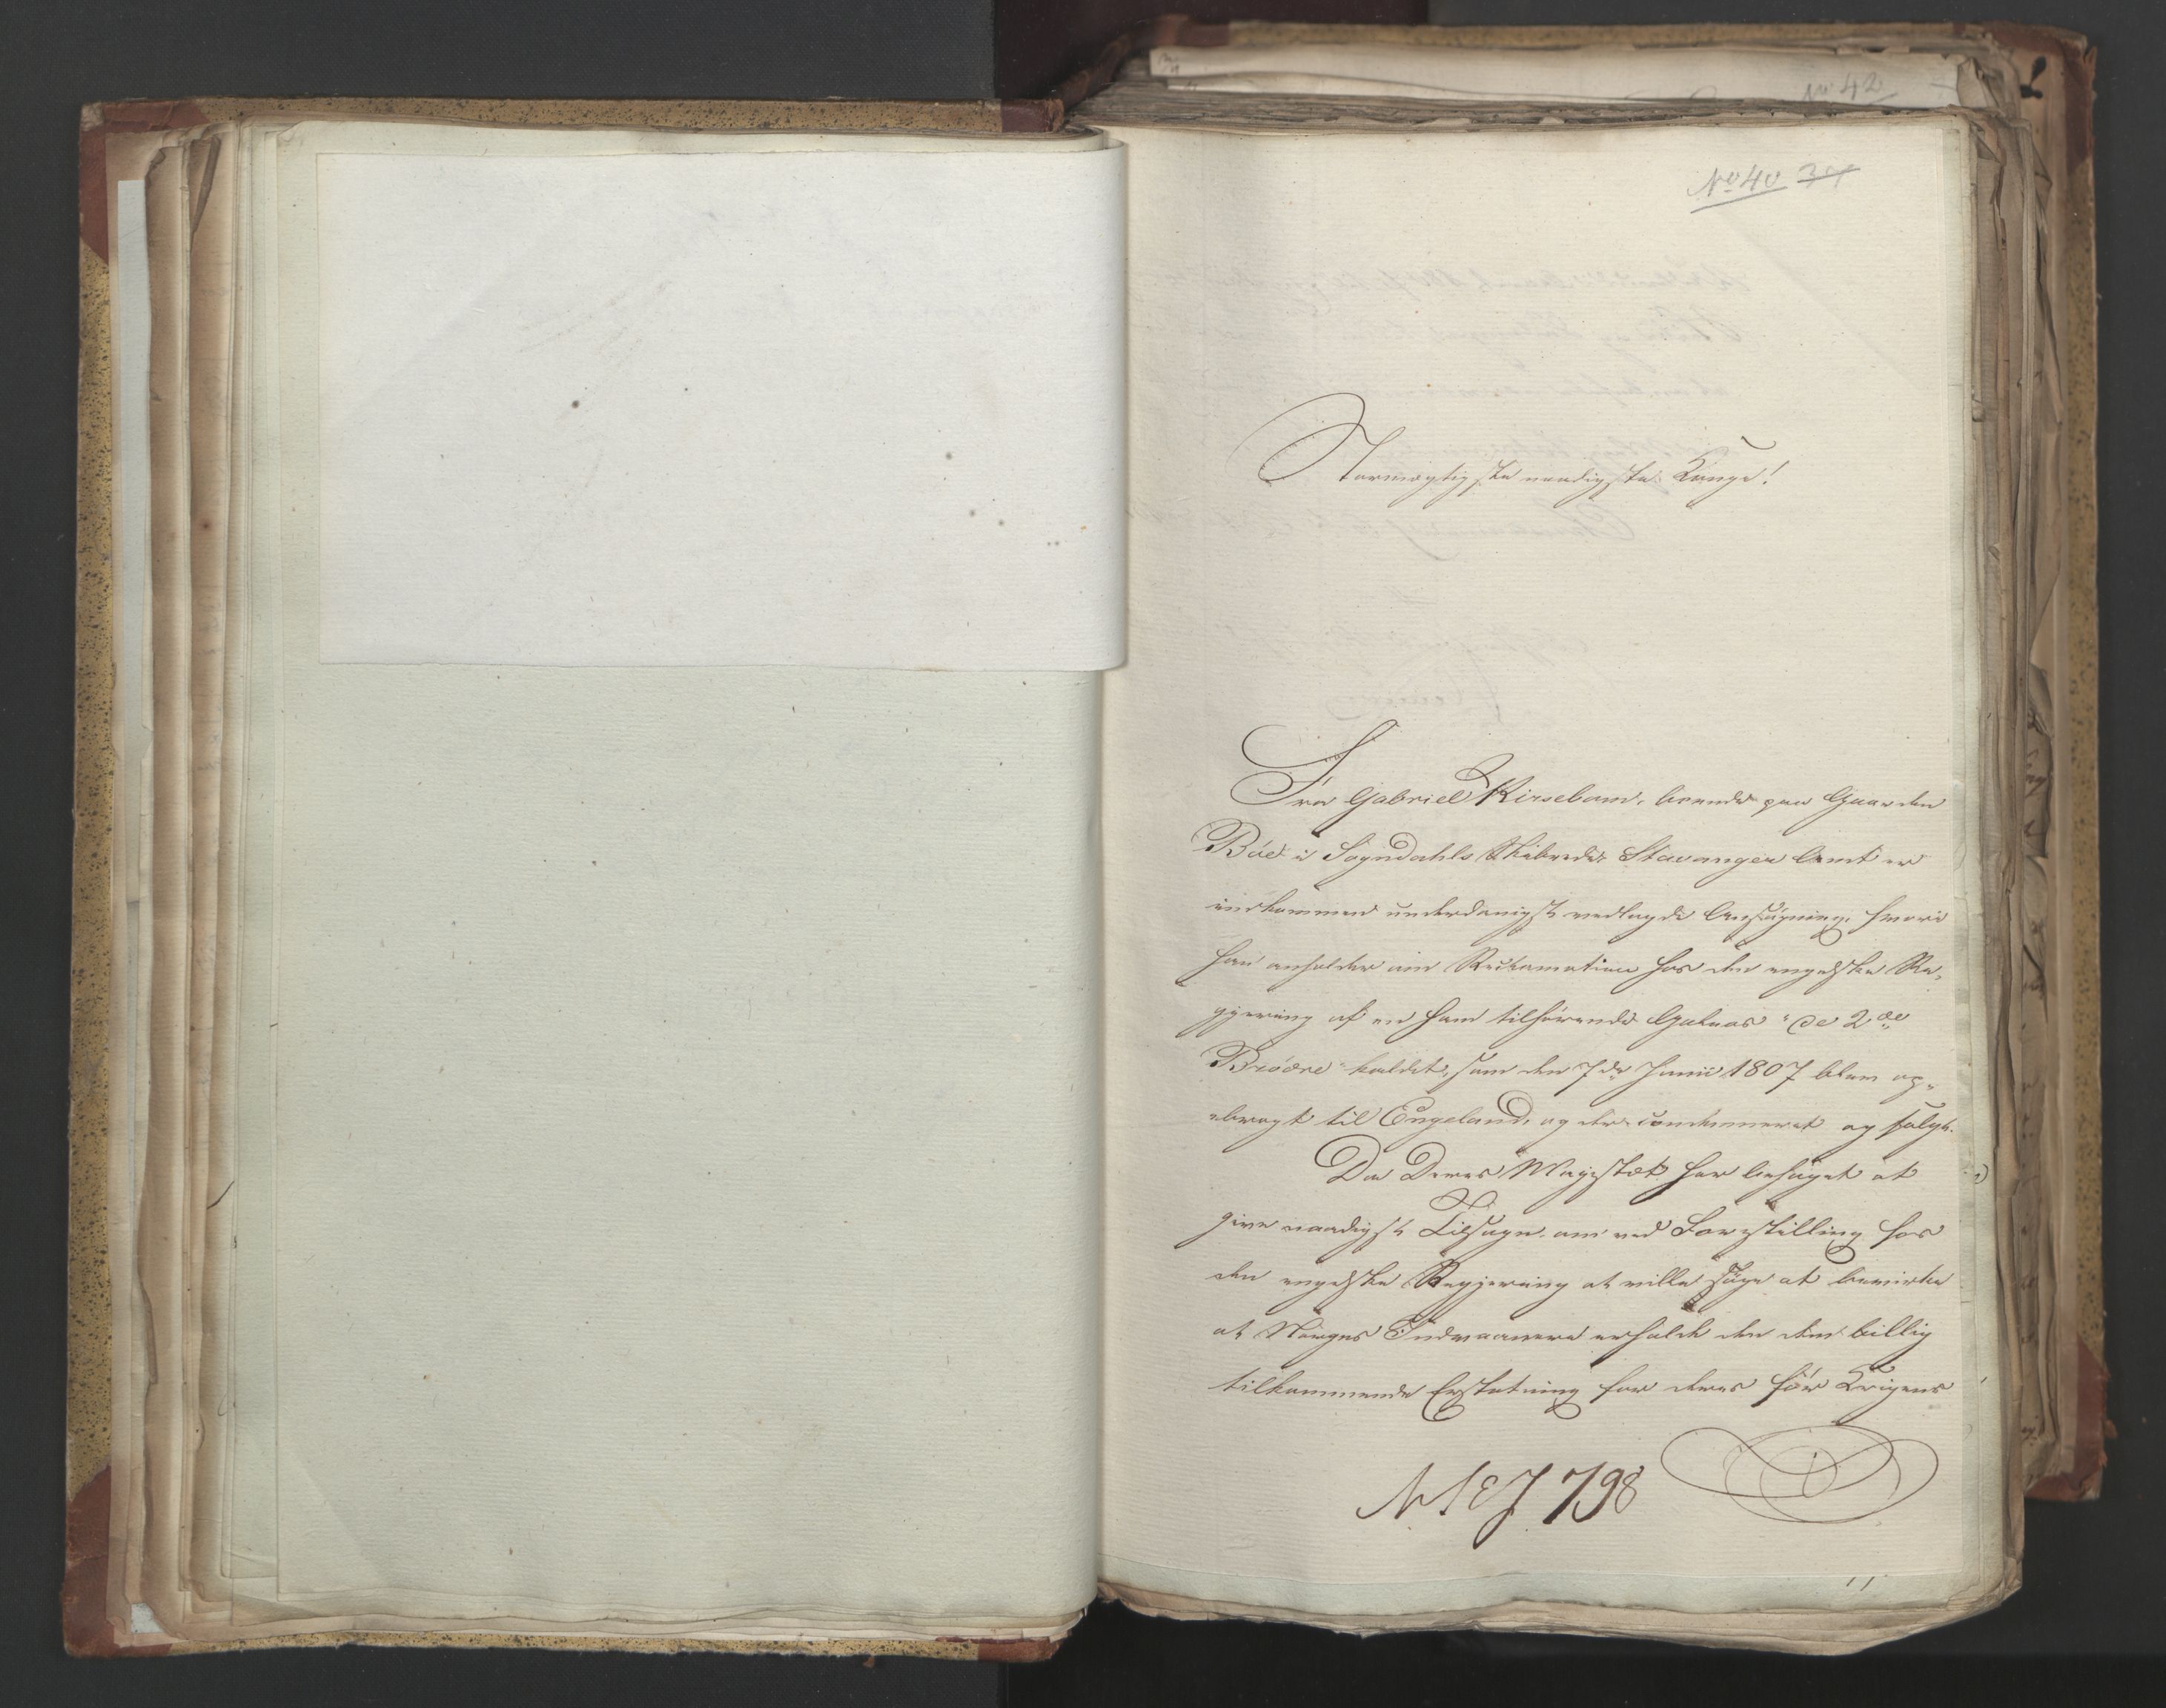 No 42
No 40 39
Stormægtigste naadigste Konge!
Fra Gabriel Kirsebom, boende paa Gaarden
Böe i Sogndahls Skibrede Stavanger Amt er
indkommen underdanigst vedlagde Ansøgning, hvori
han anholder om Reclamation hos den engelske Re-
gjering af en ham tilhørende Galeas "de 2de
Brödre" kaldet, som den 7de Junii 1807 blev op-
bragt til Engeland, og der condemneret og solgt.
Da Deres Majestæt har behaget at
give naadigst Tilsagn om ved Forestilling hos
den engelske Regjering at ville søge at bevirke
at Norges Indvaanere erholde den dem billig
tilkommende Erstatning for deres för Krigens
N 1EJ 798